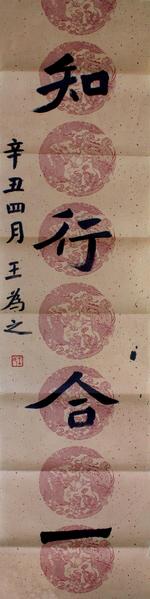 知行合一
辛丑四月 王為之